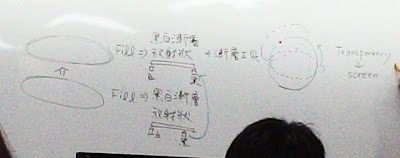 黑白漸層
Fill ⇒ 放射狀 + 漸層工具
Transparency
↓
screen
Fill ⇒ 黑白漸層
放射狀